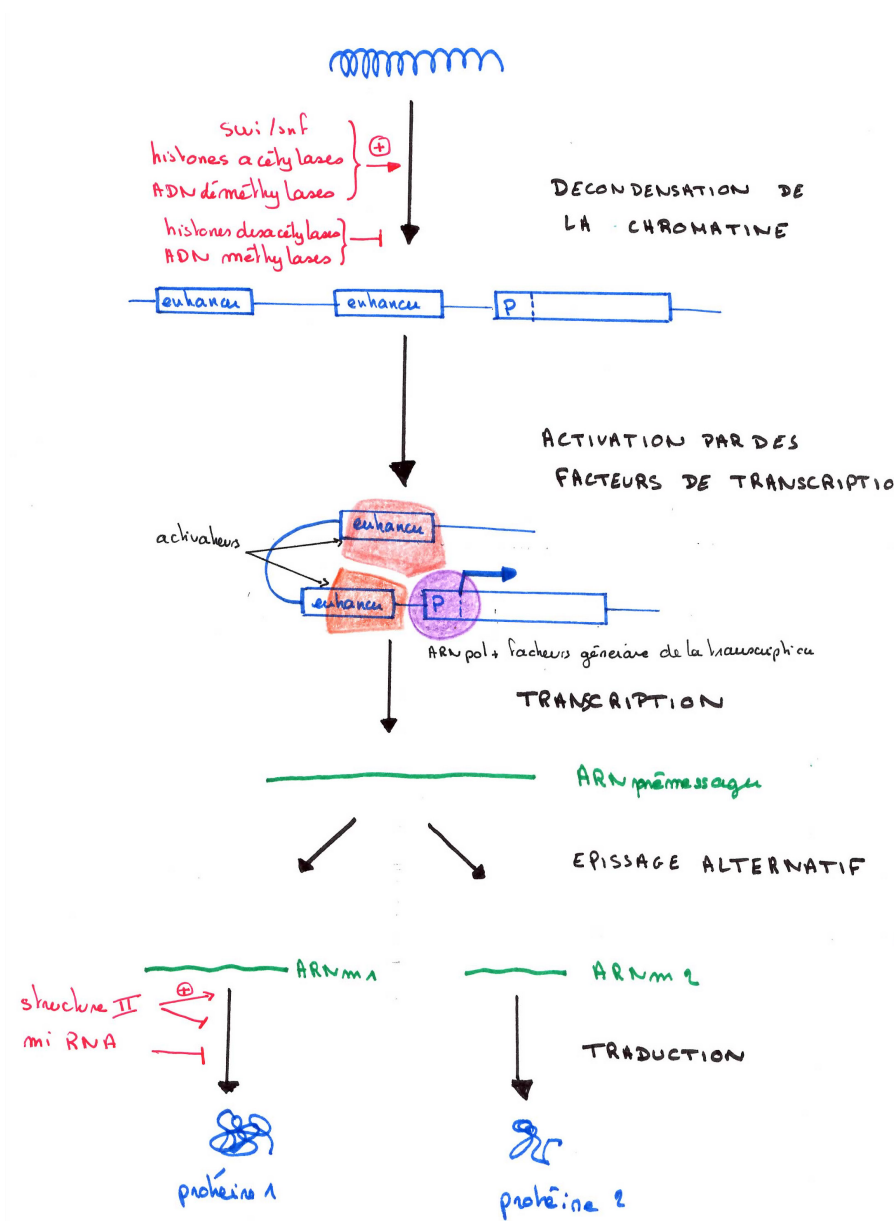 swi/snf
histones acétylases
ADN déméthylases
+
histones desacétylases
ADN méthylases
DECONDENSATION DE
LA CHROMATINE
enhancer
enhancer
P
ACTIVATION PAR DES
FACTEURS DE TRANSCRIPTIO
activateurs
enhancer
enhancer
P
ARN pol + facteurs généraux de la transcription
TRANSCRIPTION
ARN prémessager
EPISSAGE ALTERNATIF
ARNm 1
ARNm 2
structure II
+
mi RNA
TRADUCTION
protéine 1
protéine 2